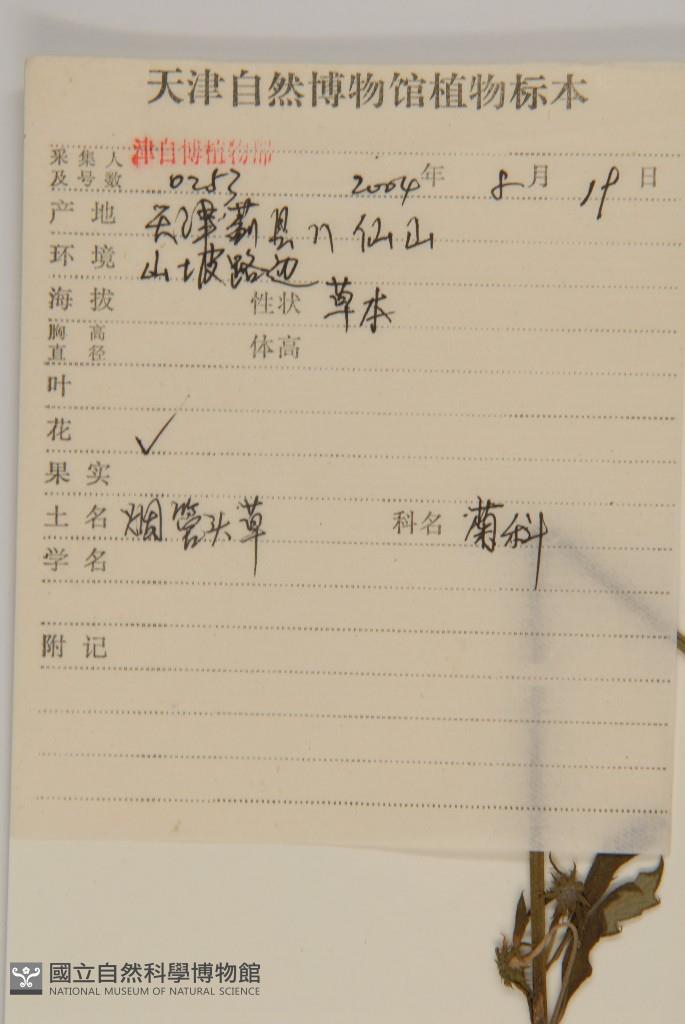 天津自然博物馆植物标本
采集人 津自博植物部
及号数 0253 2004年 8月 19日
产地 天津蓟县八仙山
环境 山坡路边
海拔 性状 草本
胸高
直径 体高
叶
花 ✓
果实
土名 烟管头草 科名 菊科
学名
附记
國立自然科學博物館
NATIONAL MUSEUM OF NATURAL SCIENCE